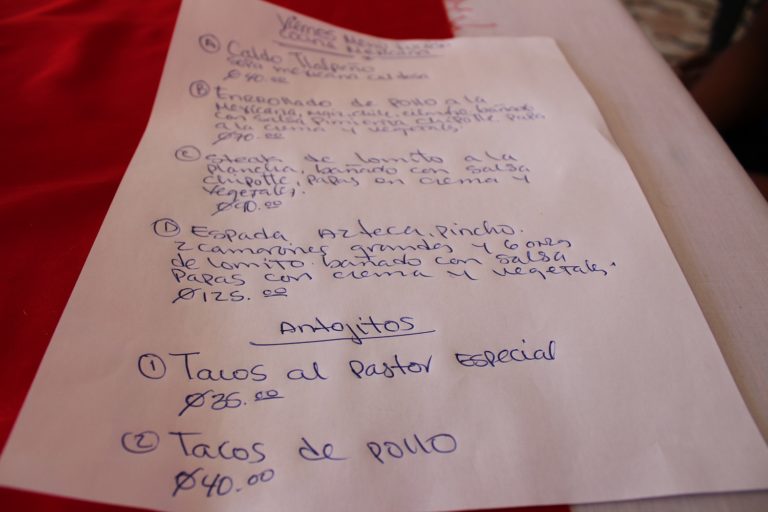 Viernes Menu
Cocina Mexicana
A Caldo Tlalpeño
Sopa mexicana caldosa
₡40.00
B Enrrollado de pollo a la
Mexicana, chile, bañado
con salsa pimienta chipotle papas
a la crema y vegetales.
₡70.00
C Steak de lomito a la
plancha, bañado con salsa
chipotle, papas en crema y
vegetales.
₡90.00
D Espada Azteca, Pincho.
2 camarones grandes y 6 onzs
de lomito. bañado con salsa
Papas con crema y vegetales.
₡125.00
Antojitos
1 Tacos al Pastor Especial
₡35.00
2 Tacos de pollo
₡40.00